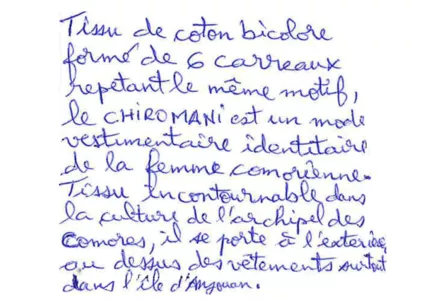 Tissu de coton bicolore
formé de 6 carreaux
repetant le même motif,
le CHIROMANI est un mode
vestimentaire identitaire
de la femme comorienne.
Tissu incontournable dans
la culture de l'archipel des
Comores, il se porte à l'exterieur
au dessus des vêtements surtout
dans l'île d'Anjouan.